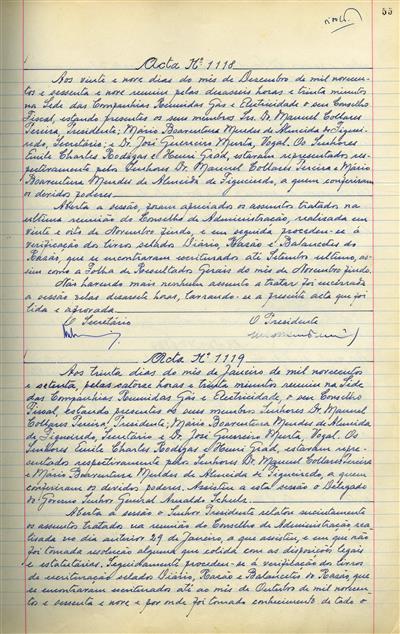 55
Acta Nº 1118
Aos vinte e nove dias do mês de Dezembro de mil novecen-
tos e sessenta e nove reuniu pelas dezasseis horas e trinta minutos
na Sede das Companhias Reunidas Gás e Electricidade o seu Conselho
Fiscal, estando presentes os seus membros Srs. Dr. Manuel Collares
Pereira, Presidente; Mário Boaventura Mendes de Almeida de Figuei-
redo, Secretário; e Dr. José Guerreiro Murta, Vogal. Os Senhores
Emile Charles Rodigas e Henri Grad, estavam representados res-
pectivamente pelos Senhores Dr. Manuel Collares Pereira e Mário
Boaventura Mendes de Almeida de Figueiredo, a quem conferiram
os devidos poderes.
Aberta a sessão, foram apreciados os assuntos tratados na
ultima reunião do Conselho de Administração, realizada em
vinte e oito de Novembro findo, e em seguida procedeu-se à
verificação dos livros selados Diário, Razão e Balancetes do
Razão, que se encontravam escriturados até Setembro ultimo, as-
sim como a Folha de Resultados Gerais do mês de Novembro findo.
Não havendo mais nenhum assunto a tratar foi encerrada
a sessão pelas dezassete horas, lavrando-se a presente acta que foi
lida e aprovada.
O Secretário O Presidente
Acta Nº 1119
Aos trinta dias do mês de Janeiro de mil novecentos
e setenta, pelas catorze horas e trinta minutos reuniu na Sede
das Companhias Reunidas Gás e Electricidade, o seu Conselho
Fiscal, estando presentes os seus membros Senhores Dr. Manuel
Collares Pereira, Presidente; Mário Boaventura Mendes de Almeida
de Figueiredo, Secretário e Dr. José Guerreiro Murta, Vogal. Os
Senhores Emile Charles Rodigas e Henri Grad, estavam repre-
sentados respectivamente pelos Senhores Dr. Manuel Collares Pereira
e Mário Boaventura Mendes de Almeida de Figueiredo, a quem
conferiram os devidos poderes. Assistiu a esta sessão o Delegado
do Governo Senhor General Arnaldo Schulz.
Aberta a sessão o Senhor Presidente relatou sucintamente
os assuntos tratados na reunião do Conselho de Administração rea-
lizada no dia anterior 29 de Janeiro, a que assistiu, e em que não
foi tomada resolução alguma que colida com as disposições legais
e estatutárias. Seguidamente procedeu-se à verificação dos livros
de escrituração selados Diário, Razão e Balancetes do Razão, que
se encontravam escriturados até ao mês de Outubro de mil novecen-
tos e sessenta e nove e por onde foi tomado conhecimento de todo o